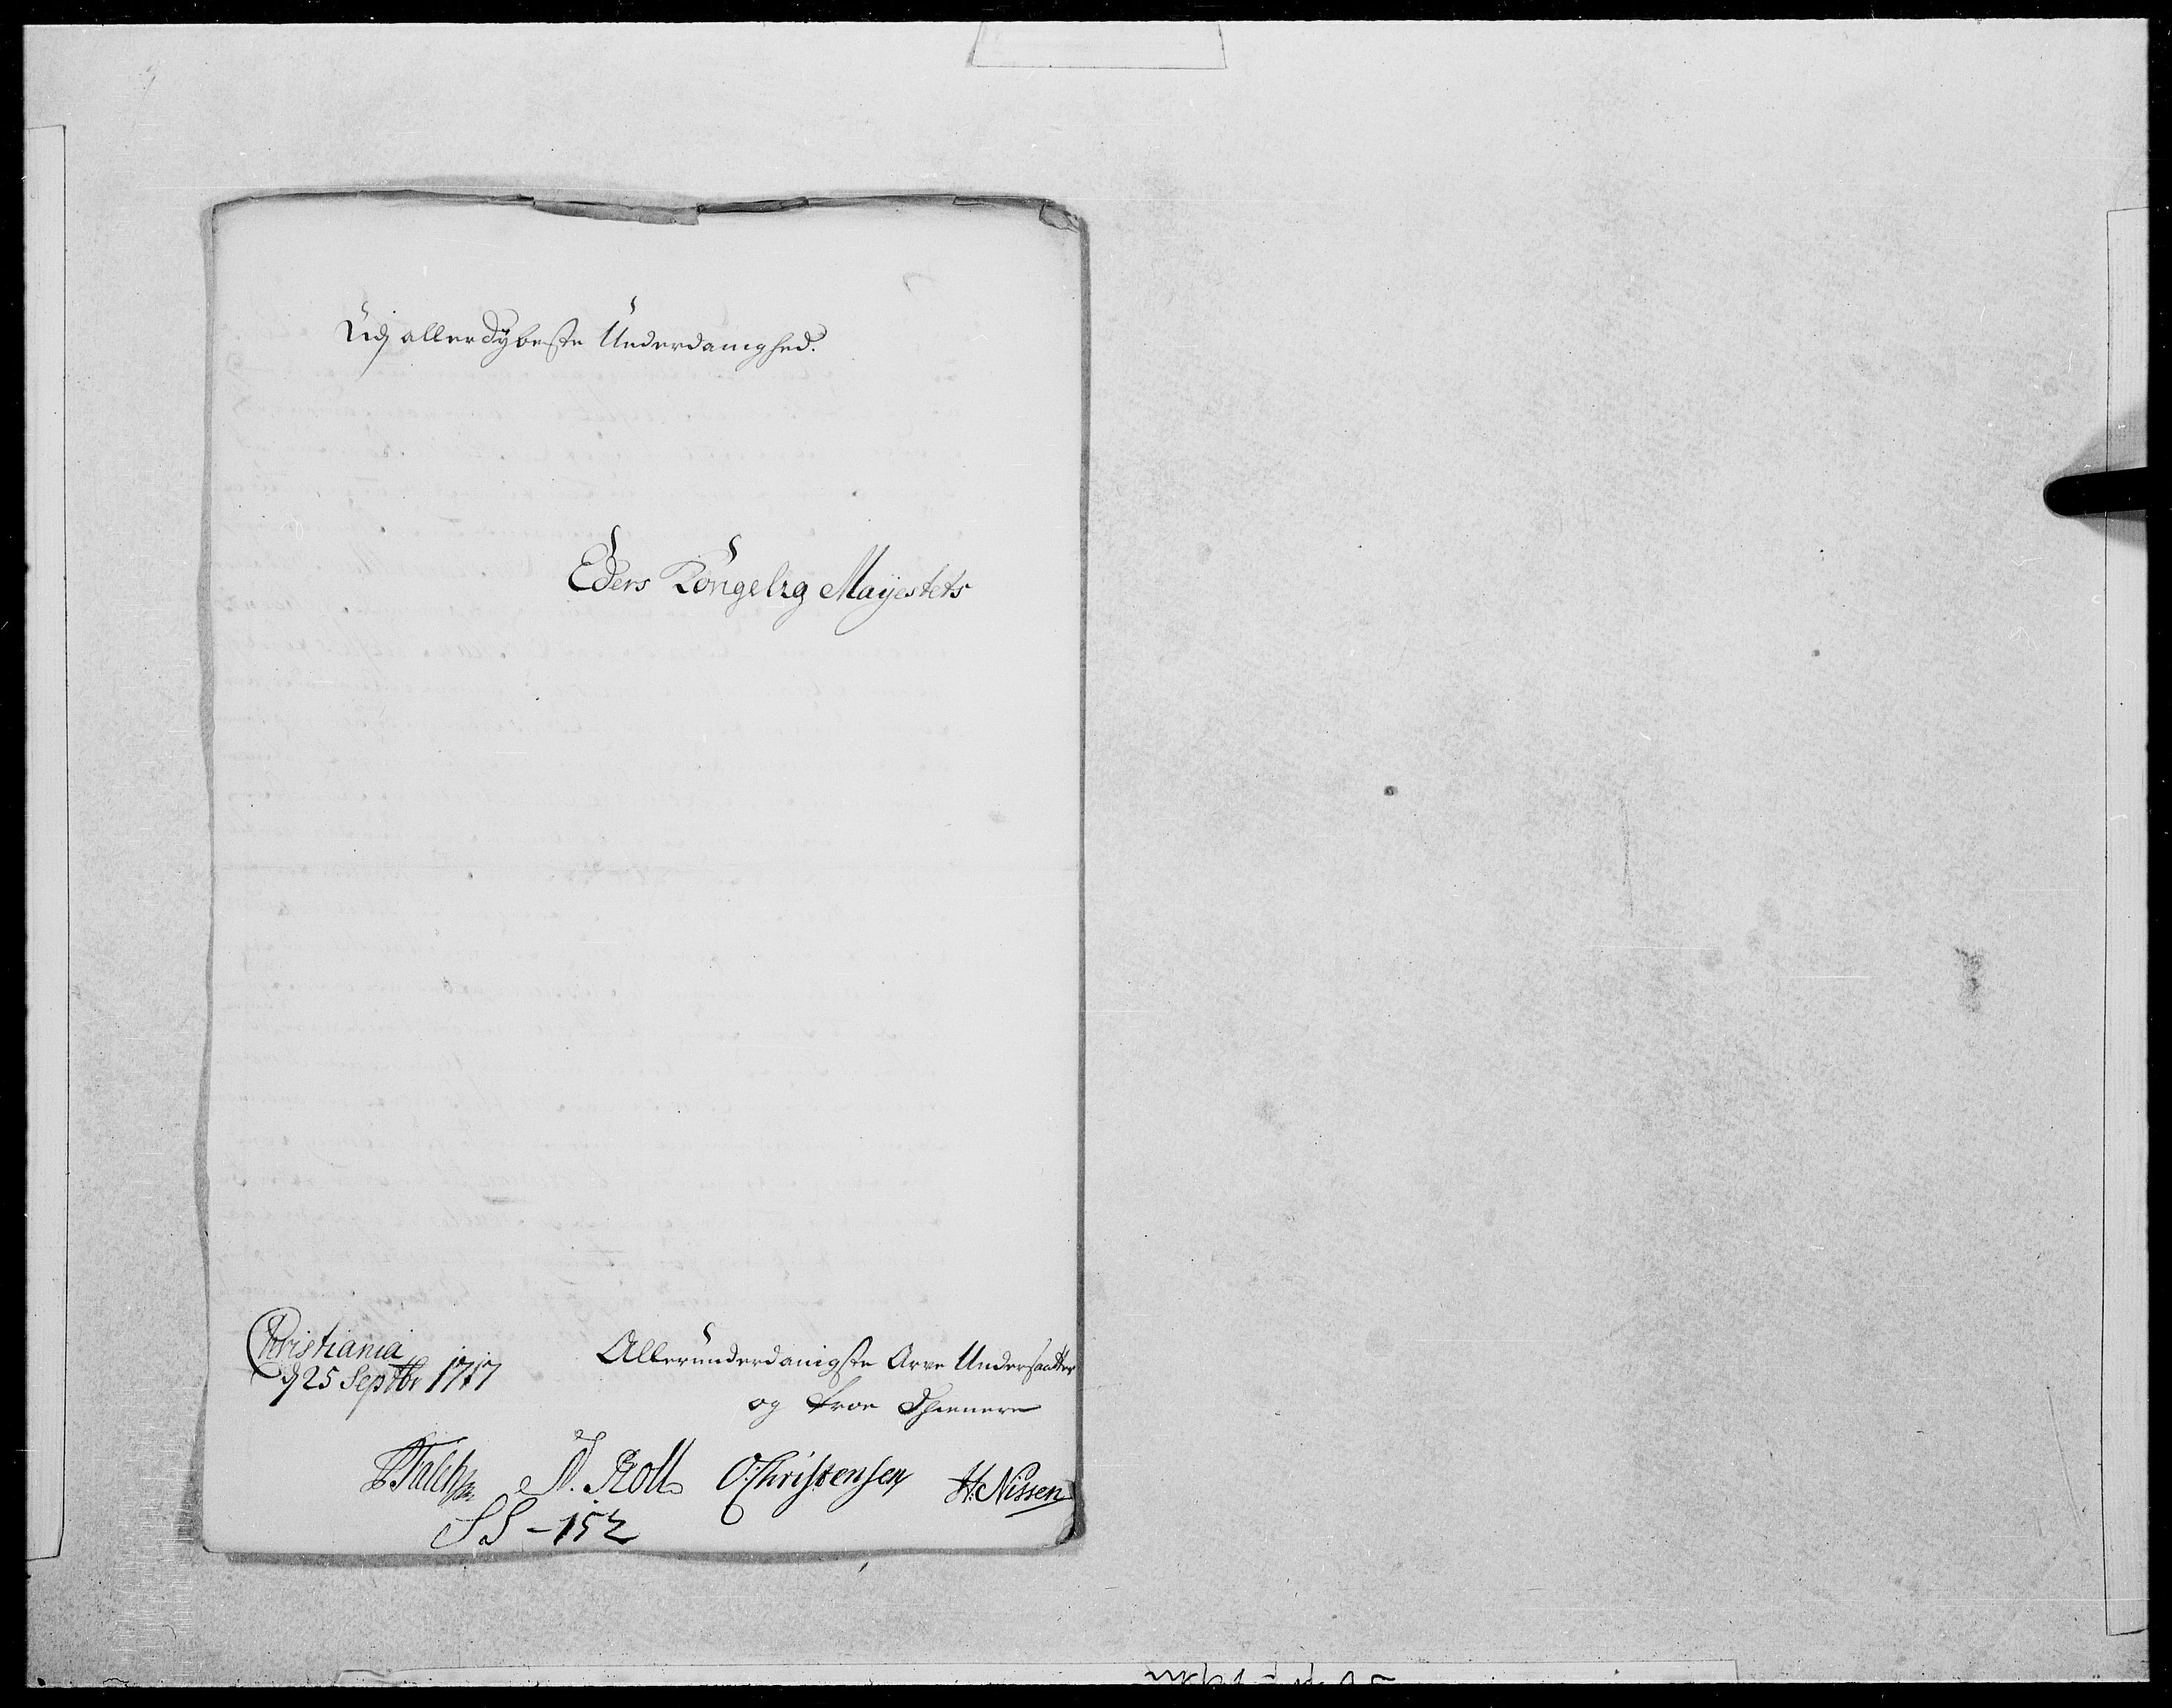 Udj allerdÿbeste Underdanighed.
Eders Kongelig Mayestets
Christiania
d 25 Septbr 1717
Allerunderdanigste Arve Undersaatter
og troe Thienere
Falch
N. Roll
O. Christensen
H. Nissen
SS - 152